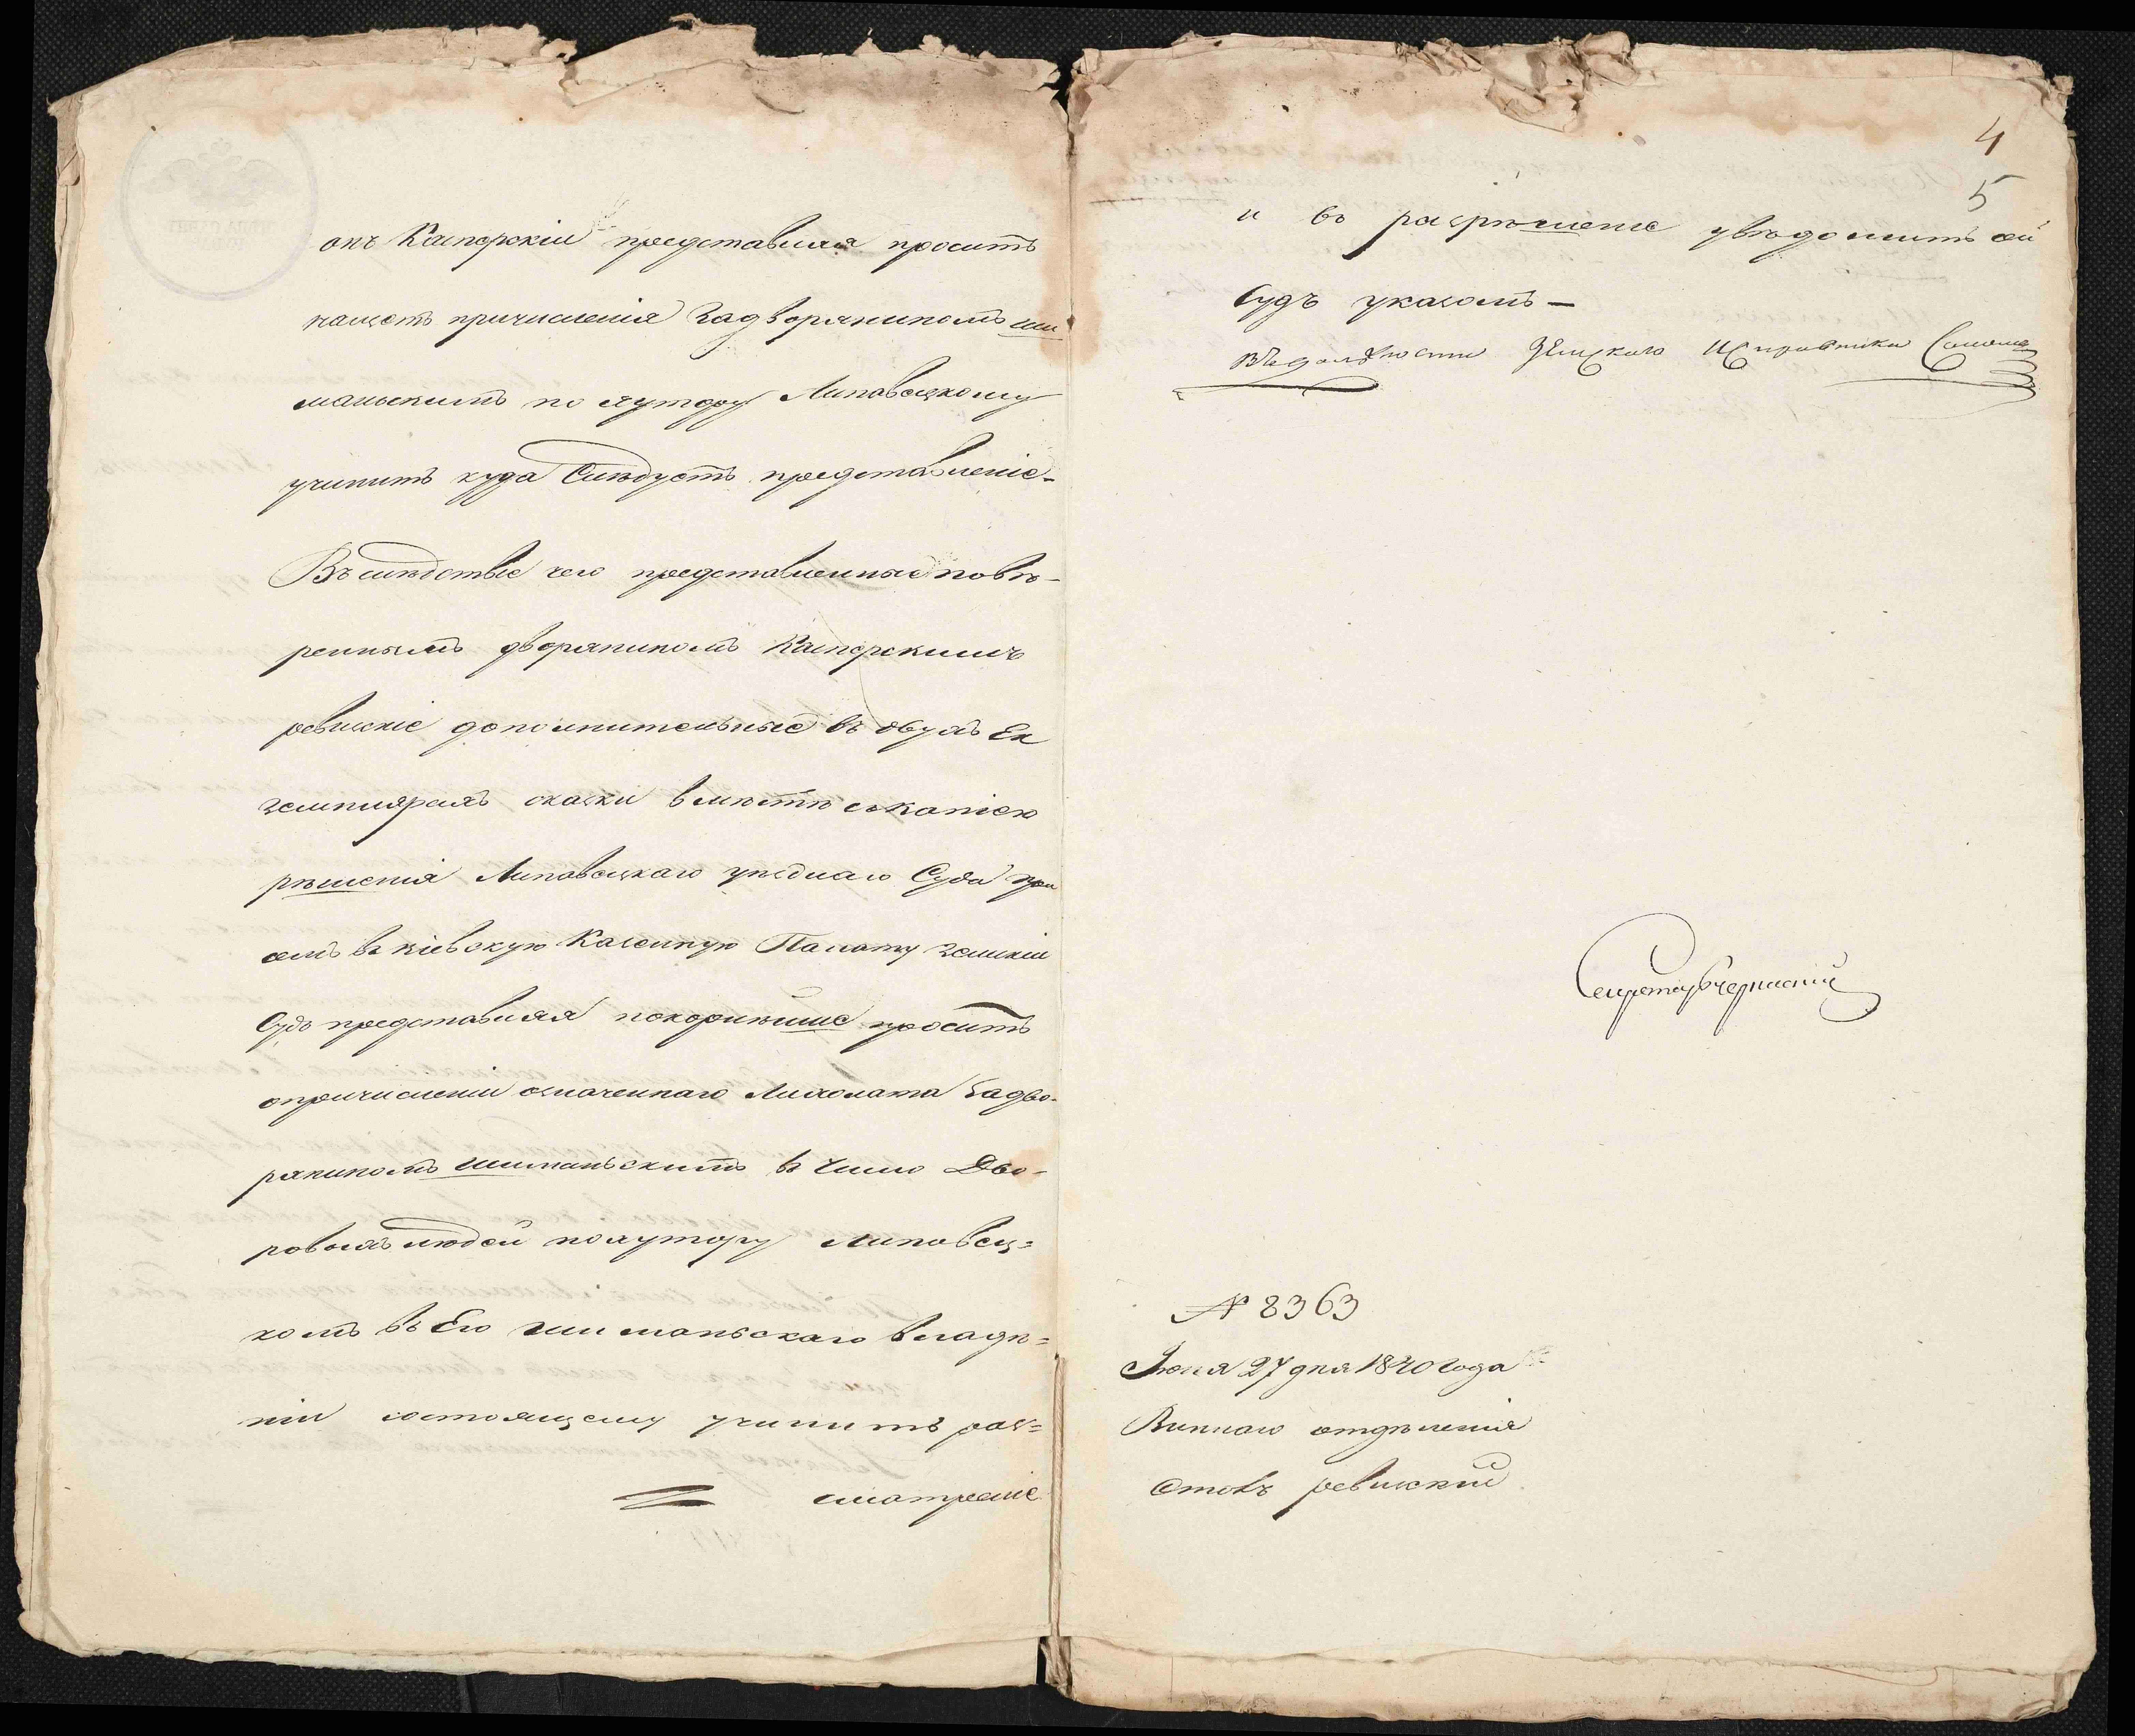 онъ Касперскій представляя проситъ
насчетъ причисленія за дворяниномъ Ши
маньскимъ по хутору Липовецкому
учинить куда слѣдуетъ представленіе.
Въ слѣдствіе чего представленные повѣ-
реннымъ дворяниномъ Касперскимъ
ревизскіе дополнительные въ двухъ Ек
земплярахъ сказки вмѣстѣ съ копіею
рѣшенія Липовецкаго уѣзднаго Суда при
семъ въ кіевскую Казенную Палату земскій
Судъ представляя покорнѣйше проситъ
о причисленіи означеннаго за дво-
ряниномъ Шиманьскимъ въ число Дво-
ровыхъ людей по хутору Липовец=
комъ въ Его Шиманьскаго владѣ=
ніи состоящему учинить раз=
смотреніе
4
5
и въ разрѣшеніе увѣдомить сей
Судъ указомъ —
Въ должности Земскаго Исправника
Секретарь
№ 8363
Іюня 27 дня 1840 года
Виннаго отдѣленія
Столъ ревизскій